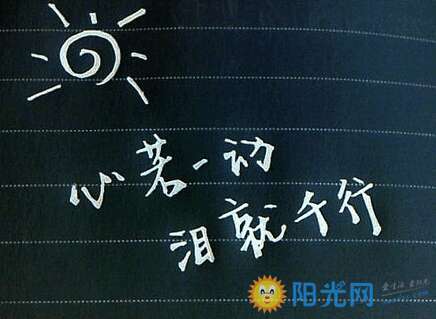 心若一动
泪就千行
阳光网